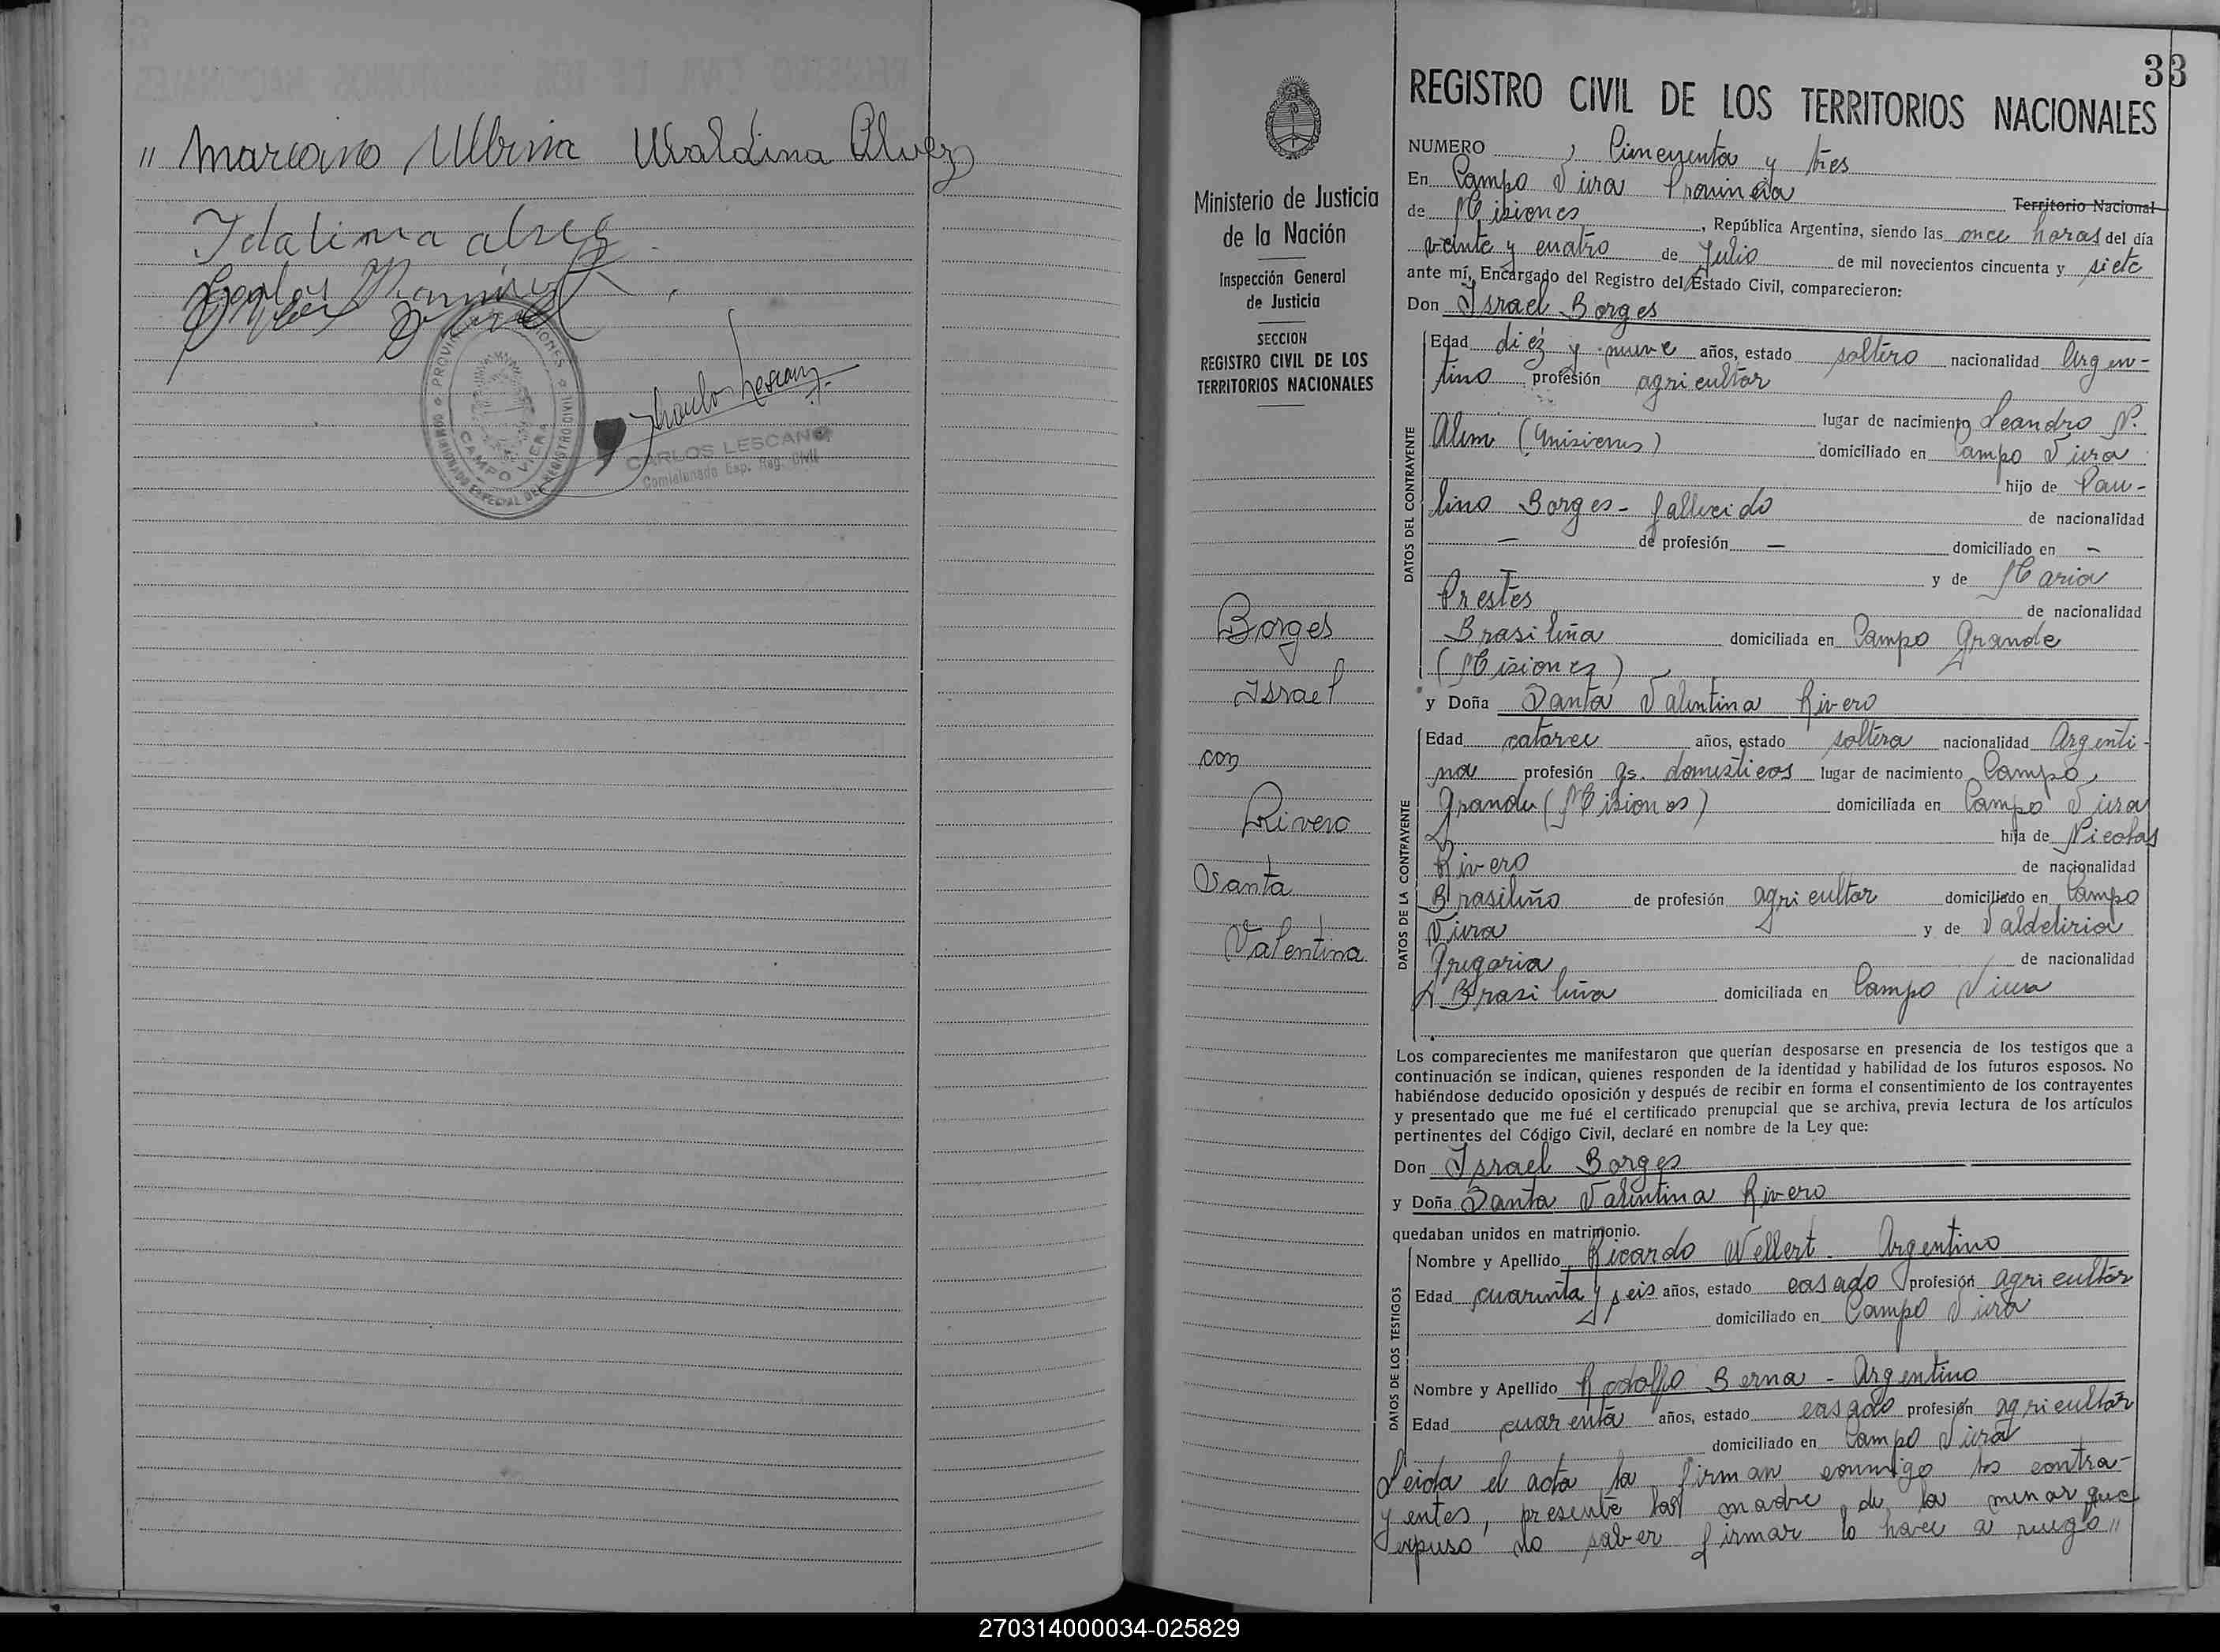 " Marcoivo Albina Ubaldina Alvez
Idalina
PROVINCIA MISIONES
COMISIONADO ESPECIAL DEL REGISTRO CIVIL
CAMPO VIERA
CARLOS LESCANO
Comisionado Esp. Reg. Civil
33
Ministerio de Justicia
de la Nación
Inspección General
de Justicia
SECCION
REGISTRO CIVIL DE LOS
TERRITORIOS NACIONALES
Borges
Israel
con
Rivero
Santa
Valentina
REGISTRO CIVIL DE LOS TERRITORIOS NACIONALES
NUMERO Cincuenta y tres
En Campo Viera Provincia Territorio Nacional
de Misiones, República Argentina, siendo las once horas del día
veinte y cuatro de Julio de mil novecientos cincuenta y siete
ante mí, Encargado del Registro del Estado Civil, comparecieron:
Don Israel Borges
DATOS DEL CONTRAYENTE
Edad diéz y nueve años, estado soltero nacionalidad Argen-
tino profesión agricultor
lugar de nacimiento Leandro N.
Alem (Misiones) domiciliado en Campo Viera
hijo de Pau-
lino Borges - fallecido de nacionalidad
— de profesión — domiciliado en —
y de Maria
Prestes de nacionalidad
Brasileña domiciliada en Campo Grande
(Misiones)
y Doña Santa Valentina Rivero
DATOS DE LA CONTRAYENTE
Edad catorce años, estado soltera nacionalidad Argenti-
na profesión qs. domesticos lugar de nacimiento Campo
Grande (Misiones) domiciliada en Campo Viera
hija de Nicolas
Rivero de nacionalidad
Brasileño de profesión agricultor domiciliado en Campo
Viera y de Valdeliria
Gregoria de nacionalidad
Brasileña domiciliada en Campo Viera
Los comparecientes me manifestaron que querían desposarse en presencia de los testigos que a
continuación se indican, quienes responden de la identidad y habilidad de los futuros esposos. No
habiéndose deducido oposición y después de recibir en forma el consentimiento de los contrayentes
y presentado que me fué el certificado prenupcial que se archiva, previa lectura de los artículos
pertinentes del Código Civil, declaré en nombre de la Ley que:
Don Israel Borges
y Doña Santa Valentina Rivero
quedaban unidos en matrimonio.
DATOS DE LOS TESTIGOS
Nombre y Apellido Ricardo Wellert - Argentino
Edad cuarenta y seis años, estado casado profesión agricultor
domiciliado en Campo Viera
Nombre y Apellido Rodolfo Berna - Argentino
Edad cuarenta años, estado casado profesión agricultor
domiciliado en Campo Viera
Leida el acta la firman conmigo los contra-
yentes, presente la madre de la menor que
expuso no saber firmar lo hace a ruego "
270314000034-025829